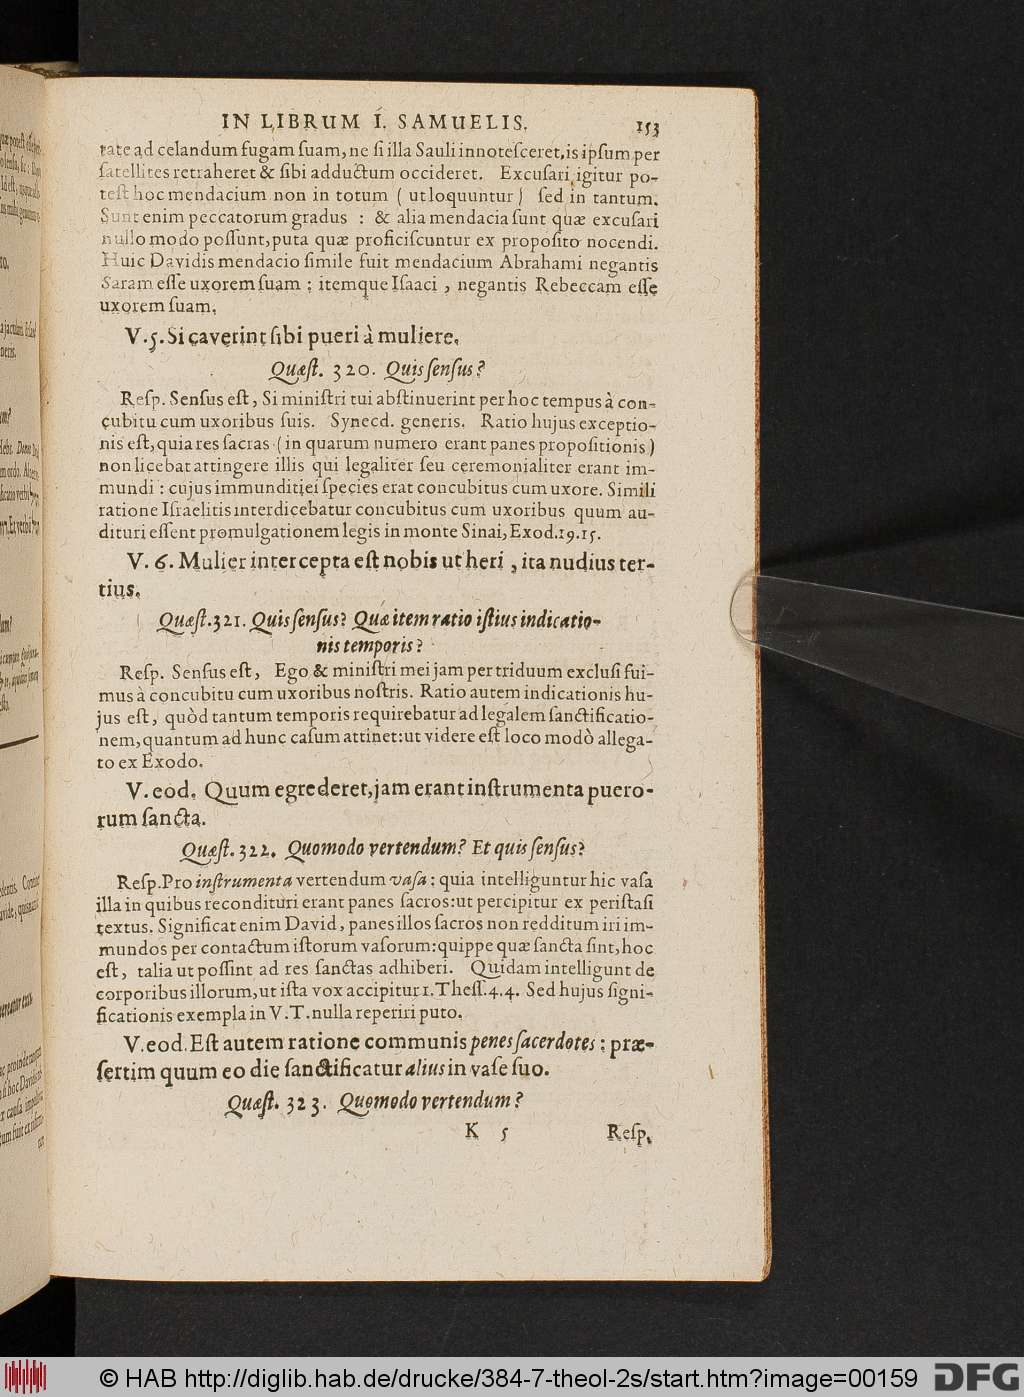 IN LIBRUM I. SAMUELIS. 153
tate ad celandum fugam suam, ne si illa Sauli innotesceret, is ipsum per
satellites retraheret & sibi adductum occideret. Excusari igitur po-
test hoc mendacium non in totum ( ut loquuntur ) sed in tantum.
Sunt enim peccatorum gradus : & alia mendacia sunt quæ excusari
nullo modo possunt, puta quæ proficiscuntur ex proposito nocendi.
Huic Davidis mendacio simile fuit mendacium Abrahami negantis
Saram esse uxorem suam : itemque Isaaci , negantis Rebeccam esse
uxorem suam.
V. 5. Si caverint sibi pueri à muliere.
Quæst. 320. Quis sensus?
Resp. Sensus est, Si ministri tui abstinuerint per hoc tempus à con-
cubitu cum uxoribus suis. Synecd. generis. Ratio hujus exceptio-
nis est, quia res sacras ( in quarum numero erant panes propositionis )
non licebat attingere illis qui legaliter seu ceremonialiter erant im-
mundi : cujus immunditiei species erat concubitus cum uxore. Simili
ratione Israelitis interdicebatur concubitus cum uxoribus quum au-
dituri essent promulgationem legis in monte Sinai, Exod. 19. 15.
V. 6. Mulier intercepta est nobis ut heri , ita nudius ter-
tius.
Quæst. 321. Quis sensus? Quæ item ratio istius indicatio-
nis temporis?
Resp. Sensus est, Ego & ministri mei jam per triduum exclusi fui-
mus à concubitu cum uxoribus nostris. Ratio autem indicationis hu-
jus est, quòd tantum temporis requirebatur ad legalem sanctificatio-
nem, quantum ad hunc casum attinet: ut videre est loco modò allega-
to ex Exodo.
V. eod. Quum egrederet, jam erant instrumenta puero-
rum sancta.
Quæst. 322. Quomodo vertendum? Et quis sensus?
Resp. Pro instrumenta vertendum vasa : quia intelliguntur hic vasa
illa in quibus recondituri erant panes sacros: ut percipitur ex peristasi
textus. Significat enim David, panes illos sacros non redditum iri im-
mundos per contactum istorum vasorum: quippe quæ sancta sint, hoc
est, talia ut possint ad res sanctas adhiberi. Quidam intelligunt de
corporibus illorum, ut ista vox accipitur 1. Thess. 4. 4. Sed hujus signi-
ficationis exempla in V. T. nulla reperiri puto.
V. eod. Est autem ratione communis penes sacerdotes : præ-
sertim quum eo die sanctificatur alius in vase suo.
Quæst. 323. Quomodo vertendum?
K 5 Resp.
© HAB http://diglib.hab.de/drucke/384-7-theol-2s/start.htm?image=00159 DFG